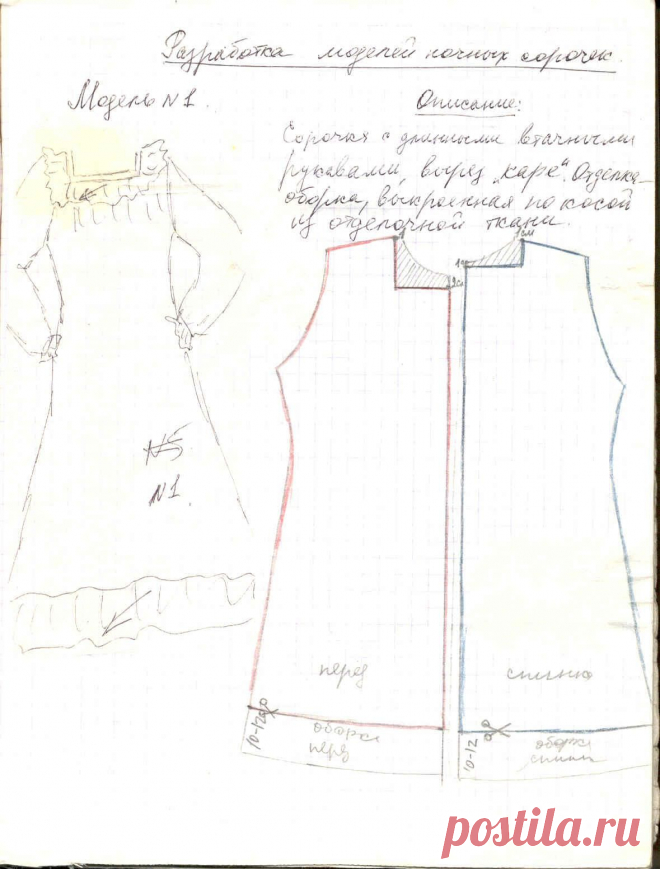 Разработка моделей ночных сорочек.
Модель N1.
Описание:
Сорочка с длинными втачными
рукавами, вырез „каре". Отделка-
оборка, выкроенная по косой
из отделочной ткани.
1см
1см
N5
N1.
перед
спинка
10-12
оборка
перед
10-12
оборка
спинки
postila.ru